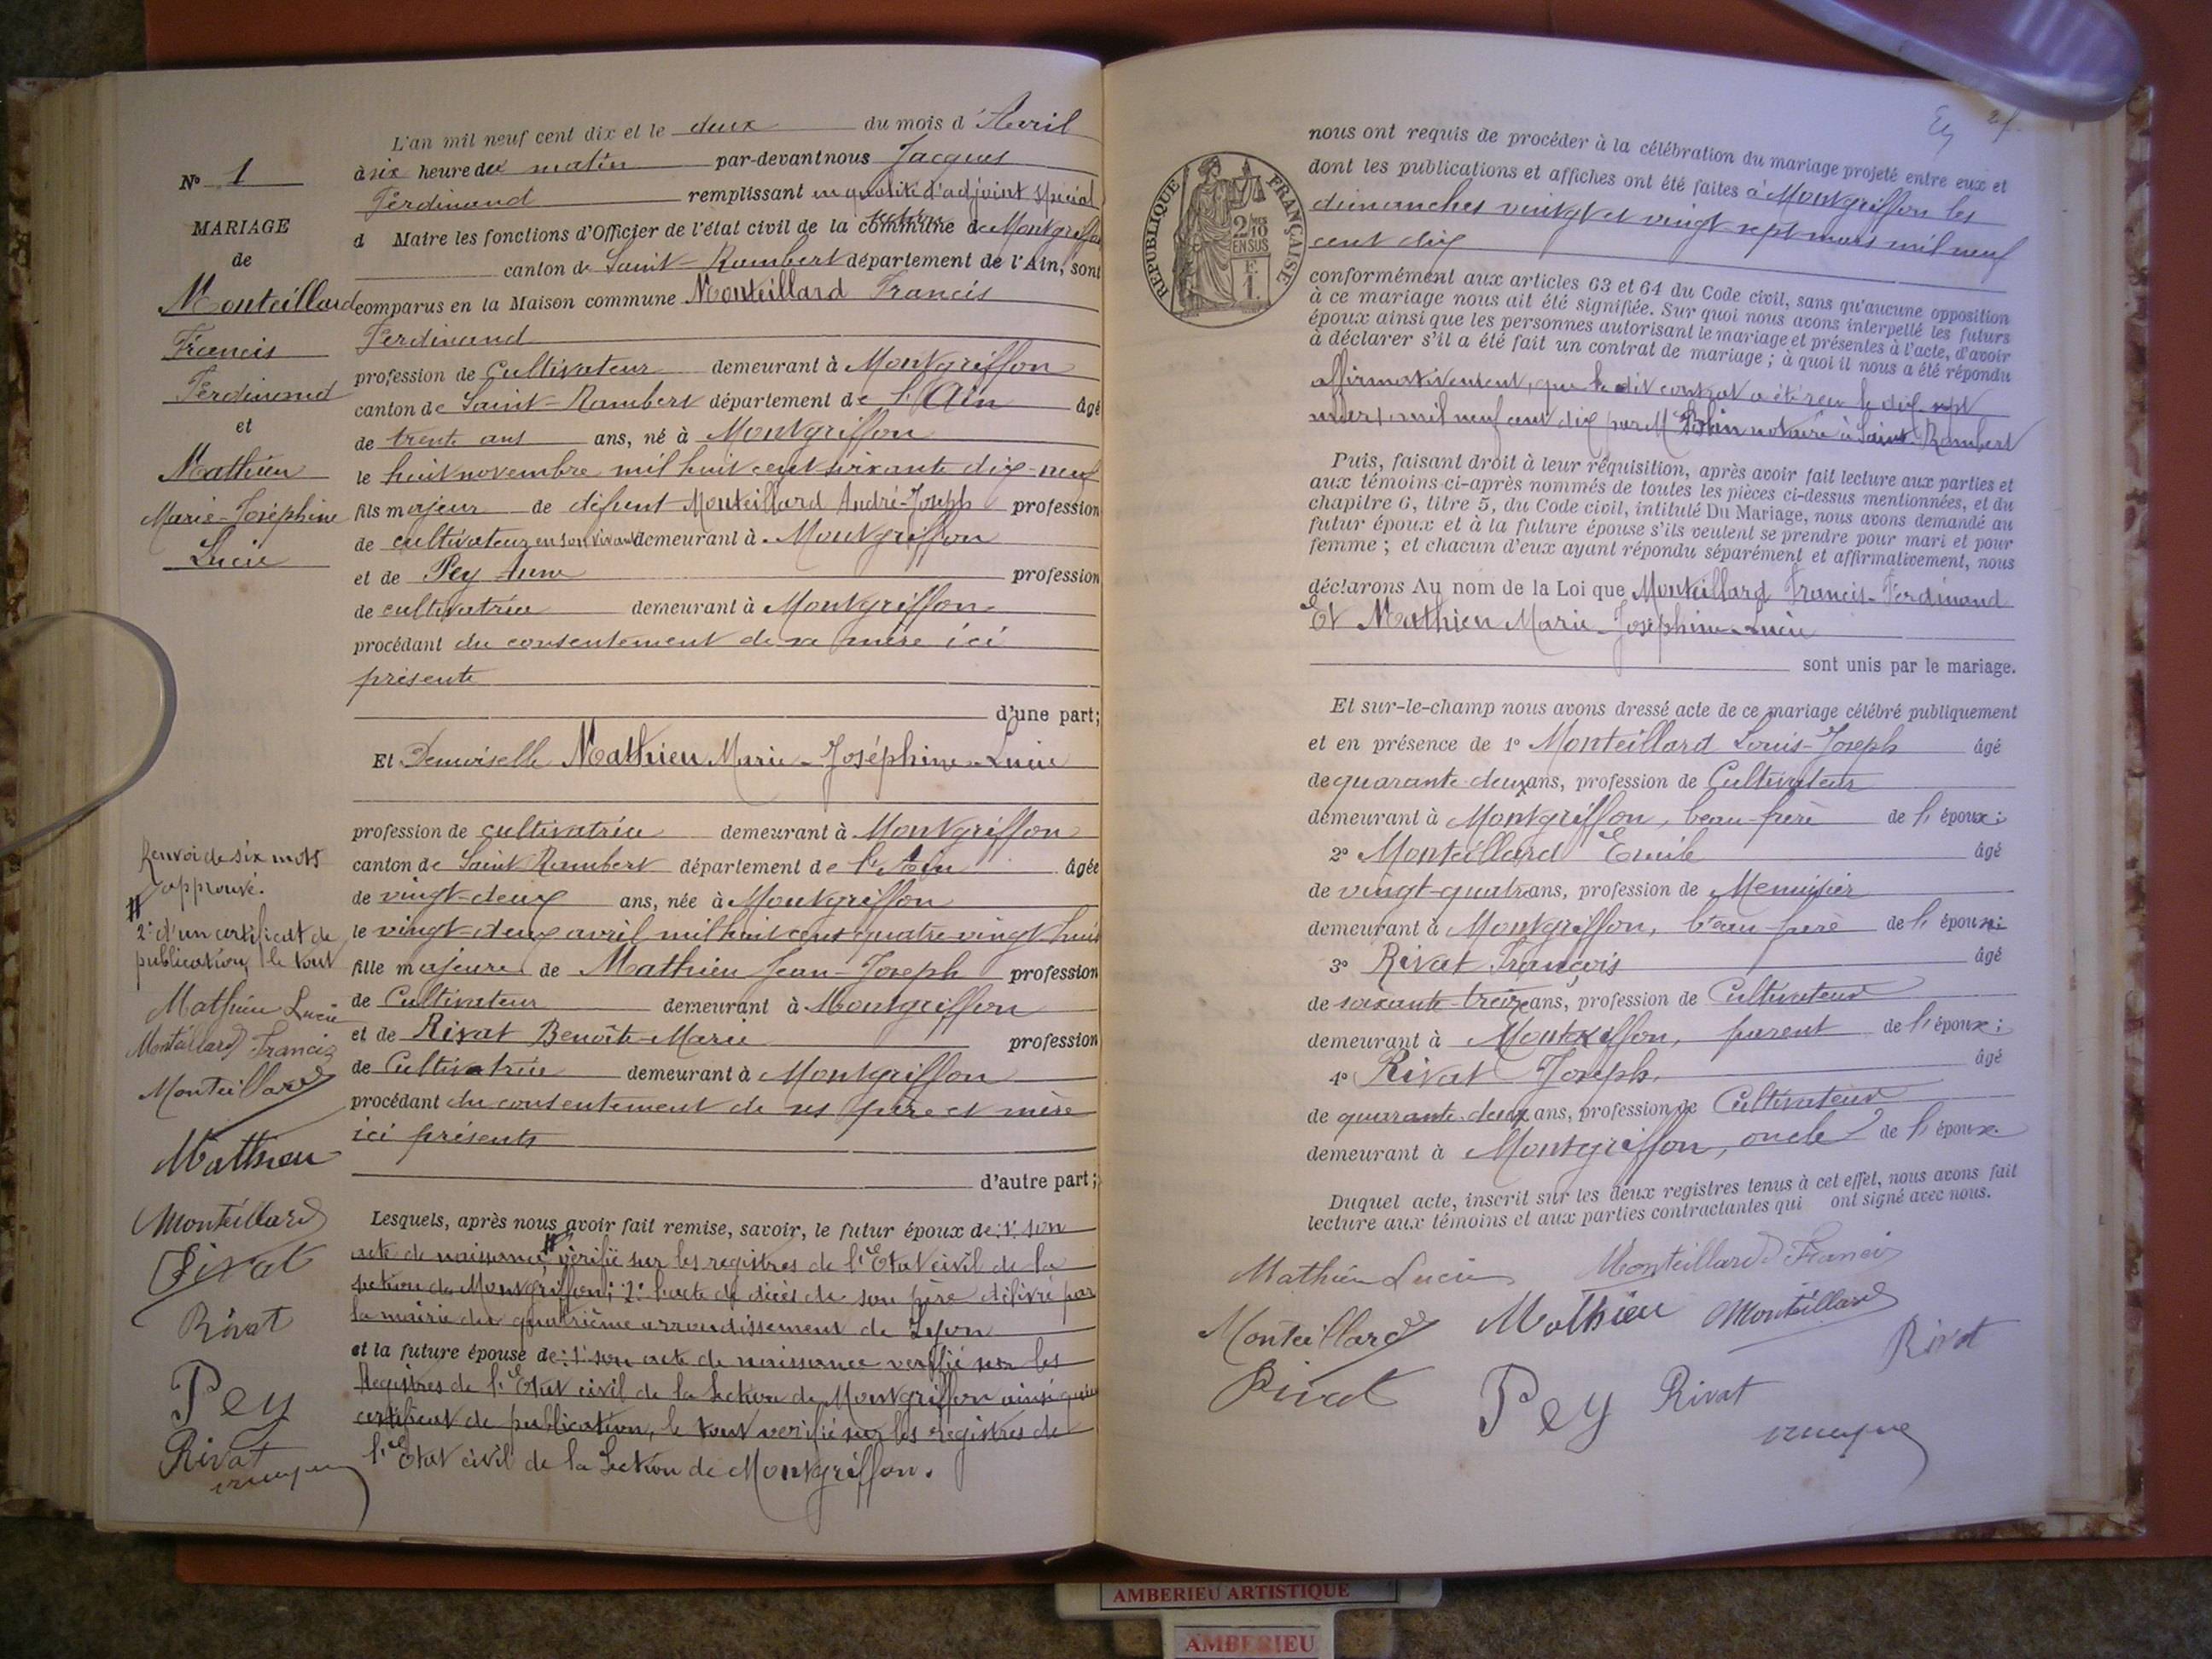 N° 1
MARIAGE
de
Monteillard
Francis
Ferdinand
et
Mathieu
Marie-Joséphine
Lucie
L'an mil neuf cent dix et le deux du mois d'Avril
à six heure du matin par-devant nous Jacques
Ferdinand remplissant en qualité d'adjoint spécial
d Maire les fonctions d'Officier de l'état civil de la commune section de Montgriffon
canton de Saint-Rambert département de l'Ain, sont
comparus en la Maison commune Monteillard Francis
Ferdinand
profession de Cultivateur demeurant à Montgriffon
canton de Saint-Rambert département de l'Ain âgé
de trente ans ans, né à Montgriffon
le huit novembre mil huit cent soixante dix-neuf
fils majeur de défunt Monteillard André-Joseph profession
de cultivateur en son vivant demeurant à Montgriffon
et de Pey Anne profession
de cultivatrice demeurant à Montgriffon
procédant du consentement de sa mère ici
présente
d'une part;
Et Demoiselle Mathieu Marie-Joséphine-Lucie
profession de cultivatrice demeurant à Montgriffon
canton de Saint Rambert département de l'Ain âgée
de vingt-deux ans, née à Montgriffon
le vingt-deux avril mil huit cent quatre vingt huit
fille majeure de Mathieu Jean-Joseph profession
de Cultivateur demeurant à Montgriffon
et de Rivat Benoîte-Marie profession
de Cultivatrice demeurant à Montgriffon
procédant du consentement de ses père et mère
ici présents
d'autre part;
Lesquels, après nous avoir fait remise, savoir, le futur époux de: 1° son
acte de naissance, # vérifié sur les registres de l'Etat civil de la
section de Montgriffon; 2° l'acte de décès de son père délivré par
la mairie du quatrième arrondissement de Lyon
et la future épouse de: 1° son acte de naissance vérifié sur les
Registres de l'Etat civil de la Section de Montgriffon ainsi qu'un
certificat de publication, le tout vérifié sur les registres de
l'Etat civil de la Section de Montgriffon.
Renvoi de six mots
approuvé.
#
2° d'un certificat de
publication, le tout
Mathieu Lucie
Monteillard Francis
Monteillard
Mathieu
Monteillard
Rivat
Rivat
Pey
Rivat
nous ont requis de procéder à la célébration du mariage projeté entre eux et
dont les publications et affiches ont été faites à Montgriffon les
dimanches vingt et vingt sept mars mil neuf
cent dix
RÉPUBLIQUE FRANÇAISE
2/10
EN SUS
F.
1.
conformément aux articles 63 et 64 du Code civil, sans qu'aucune opposition
à ce mariage nous ait été signifiée. Sur quoi nous avons interpellé les futurs
époux ainsi que les personnes autorisant le mariage et présentes à l'acte, d'avoir
à déclarer s'il a été fait un contrat de mariage; à quoi il nous a été répondu
affirmativement, que le dit contrat a été reçu le dix sept
mars mil neuf cent dix par M Blin notaire à Saint Rambert
Puis, faisant droit à leur réquisition, après avoir fait lecture aux parties et
aux témoins ci-après nommés de toutes les pièces ci-dessus mentionnées, et du
chapitre 6, titre 5, du Code civil, intitulé Du Mariage, nous avons demandé au
futur époux et à la future épouse s'ils veulent se prendre pour mari et pour
femme; et chacun d'eux ayant répondu séparément et affirmativement, nous
déclarons Au nom de la Loi que Monteillard Francis-Ferdinand
Et Mathieu Marie-Joséphine-Lucie
sont unis par le mariage.
Et sur-le-champ nous avons dressé acte de ce mariage célébré publiquement
et en présence de 1° Monteillard Louis-Joseph âgé
de quarante-deux ans, profession de Cultivateur
demeurant à Montgriffon, beau-frère de l'époux;
2° Monteillard Emile âgé
de vingt-quatre ans, profession de Menuisier
demeurant à Montgriffon, beau-frère de l'épouse
3° Rivat François âgé
de soixante-treize ans, profession de Cultivateur
demeurant à Montgriffon, parent de l'époux;
4° Rivat Joseph âgé
de quarante-deux ans, profession de Cultivateur
demeurant à Montgriffon, oncle de l'épouse
Duquel acte, inscrit sur les deux registres tenus à cet effet, nous avons fait
lecture aux témoins et aux parties contractantes qui ont signé avec nous.
Mathieu Lucie Monteillard Francis
Monteillard Mathieu Monteillard
Rivat Pey Rivat Rivat
AMBERIEU ARTISTIQUE
AMBERIEU